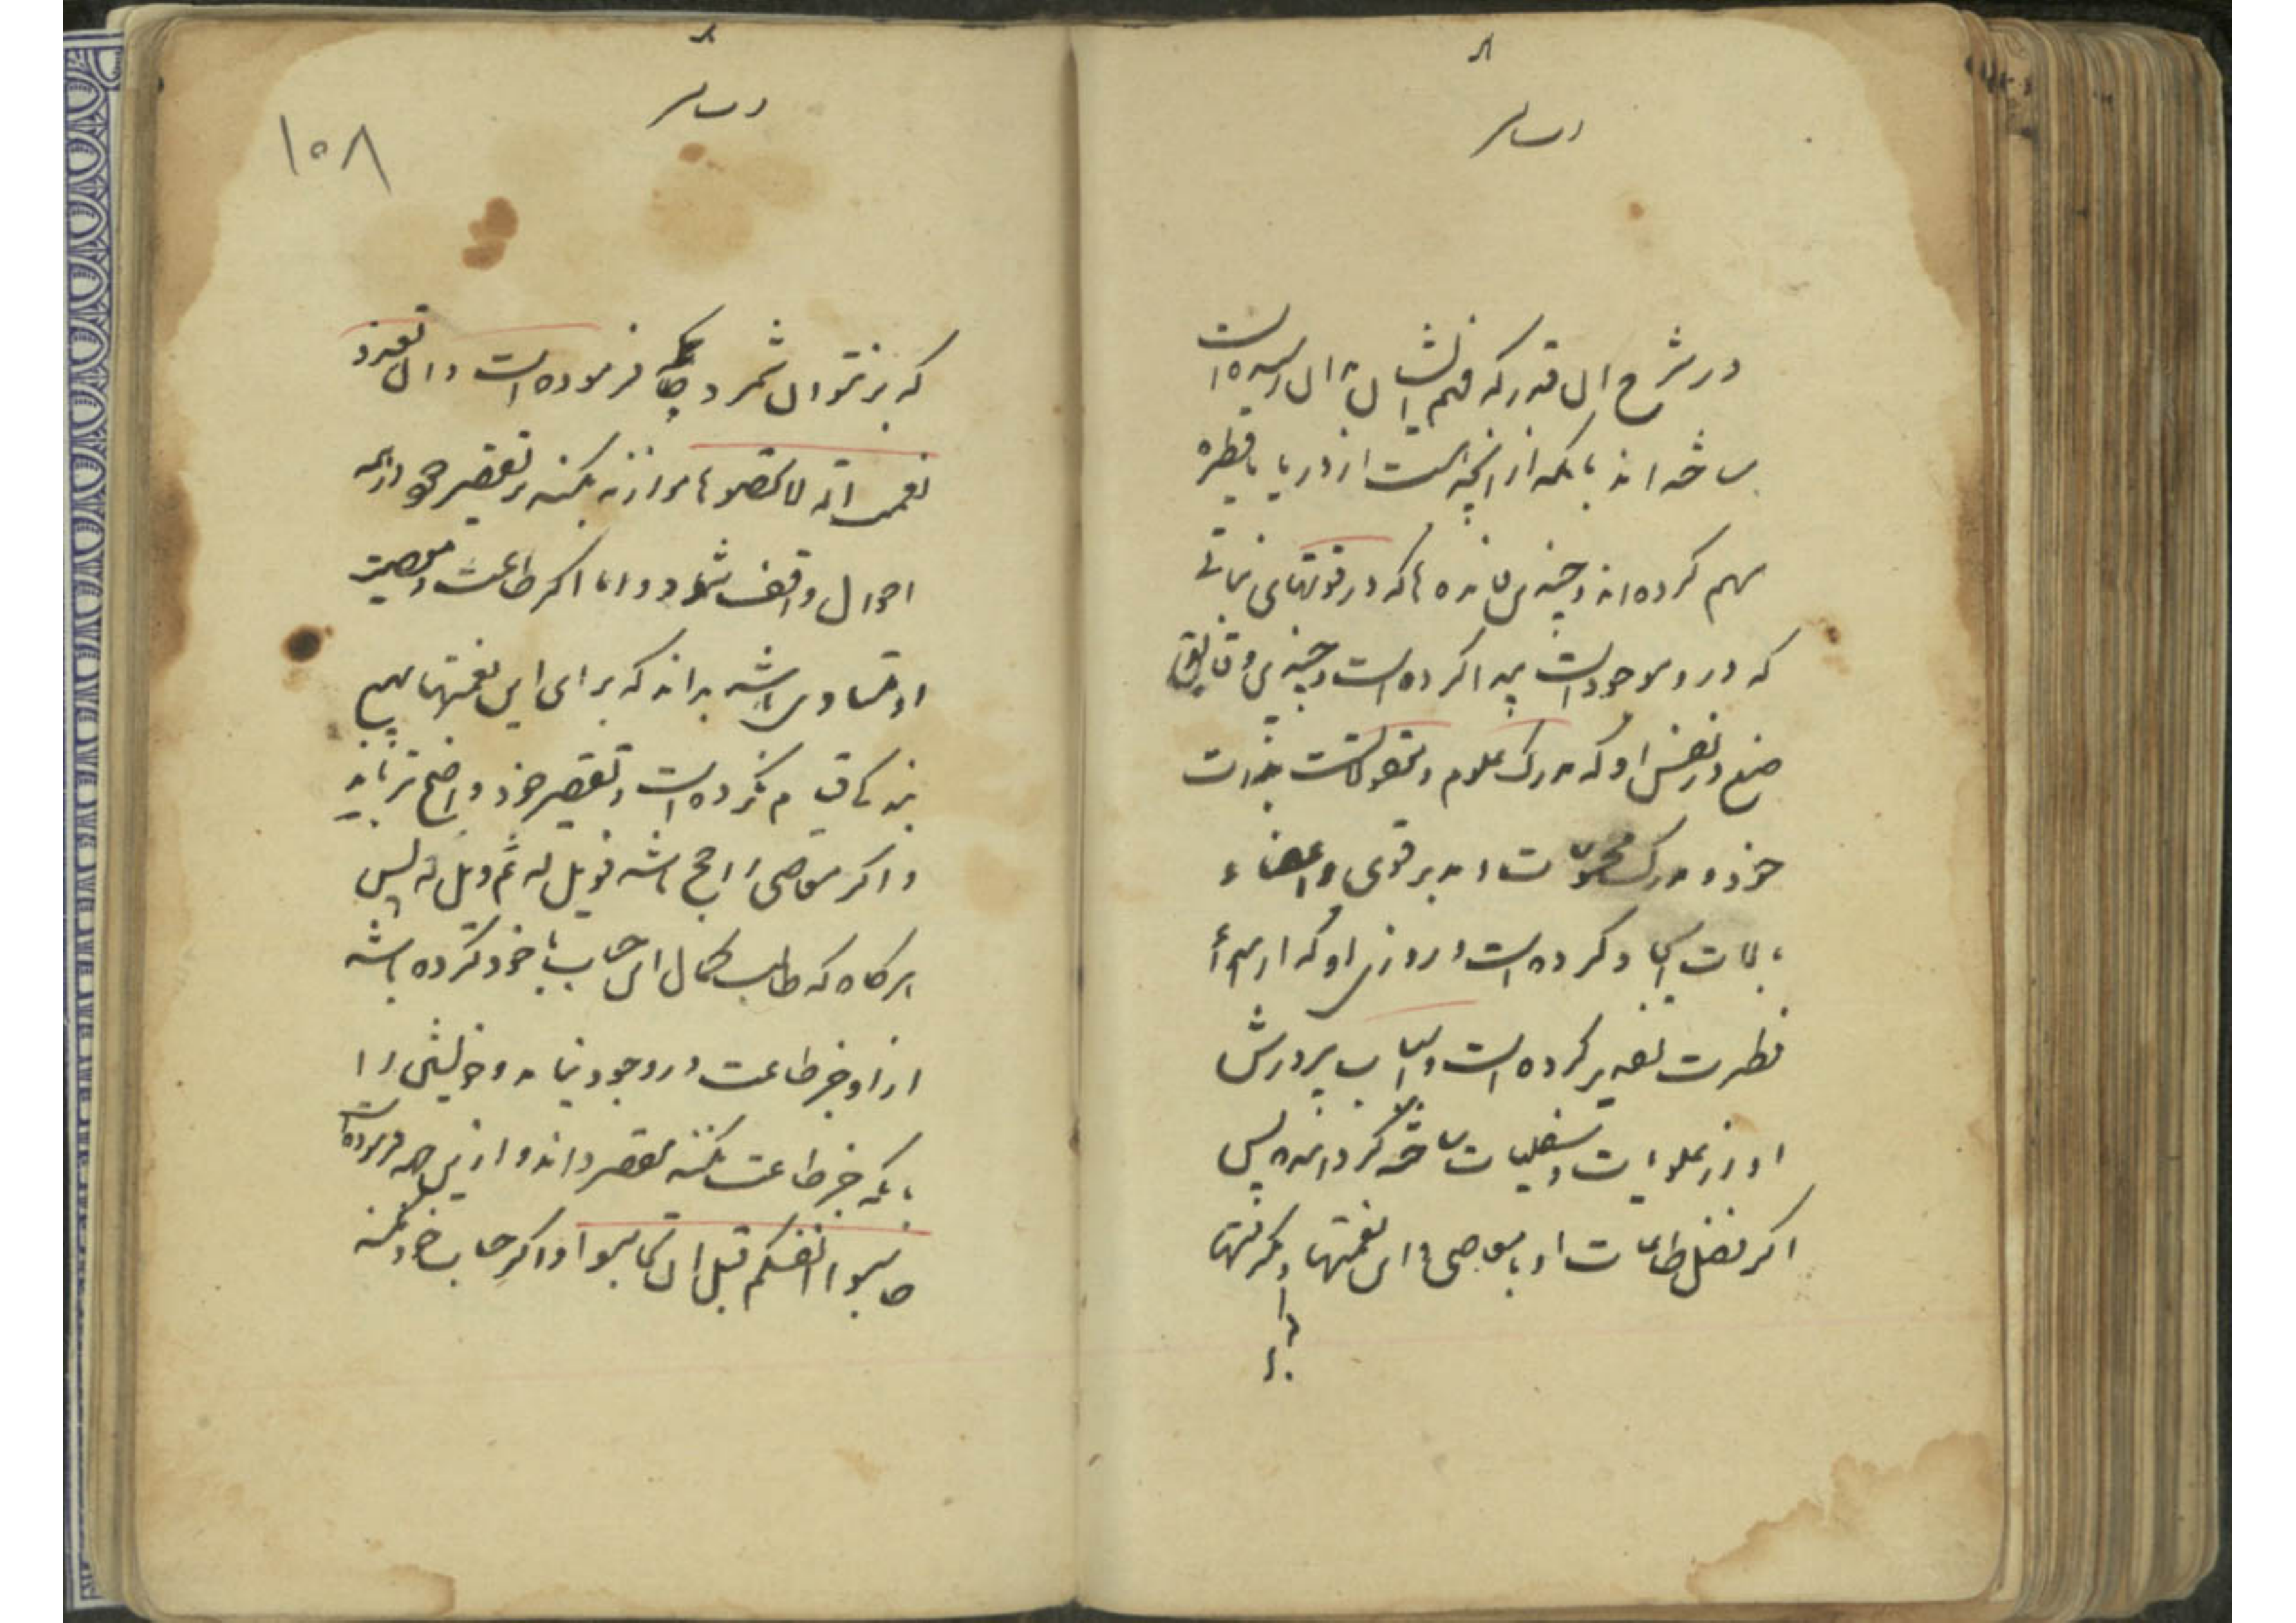 در شرح آن قدر که فهم ایشان بآن رسیده است
ساخته اند با آنکه از آنچه هست از دریا با قطره
سهم کرده اند و چندین مانده تا که در قوتهای نباتی
که در و موجودات پیدا کرده است و چندین دقایق
صنع در نفس او که مدرک علوم و معقولات بذات
خود و مدرک محسوسات و مدبر قوی و اعضاء
بالات ایجاد کرده است و روزی او که از مبدأ
فطرت تقدیر کرده است و اسباب پرورش
او از علویات و سفلیات ساخته گردانیده پس
اگر فضل طاعات او با معاصی و این نعمتها و مکرمتها
که بر نتوان شمرد چنانکه فرموده است وان تعدوا
نعمت الله لا تحصوها موازنه بکند بر تقصیر خود در همه
احوال واقف شود و اما اگر طاعت و معصیت
او متساوی باشد بداند که برای این نعمتها هیچ
بندگی قیام نکرده است و تقصیر خود واضح تر یابد
و اگر معاصی راجح باشد فویل له ثم ویل له پس
هرگاه که طالب کمال این حساب با خود کرده باشد
از او جز طاعت در وجود نیاید و خویشتن را
با آنکه جز طاعت نکند مقصر داند و از این جهه فرموده است
حاسبوا انفسکم قبل ان تحاسبوا و اگر حساب خود نکند
۱۰۸